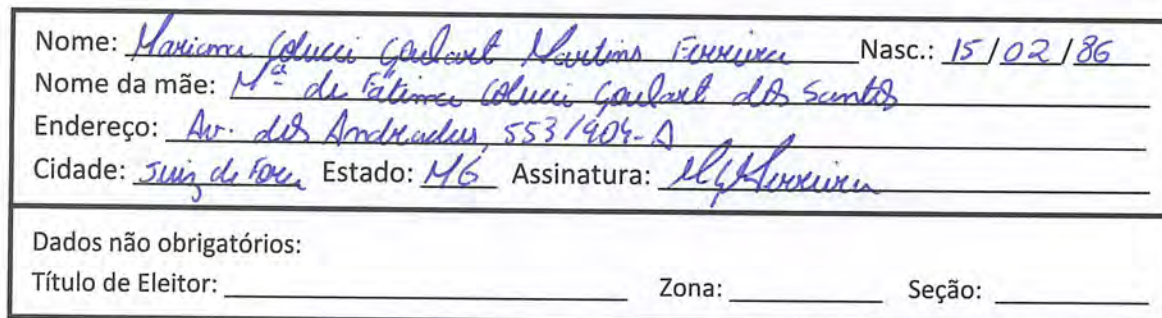 Nome: Mariana Colucci Goulart Martins Ferreira Nasc.: 15/02/86
Nome da mãe: Mª de Fátima Colucci Goulart dos Santos
Endereço: Av. dos Andradas, 553/904-A
Cidade: Juiz de Fora Estado: MG Assinatura: Ferreira
Dados não obrigatórios:
Título de Eleitor: Zona: Seção: